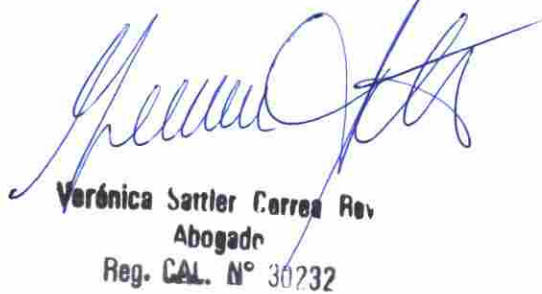 Verónica Sattler Correa Rey
Abogado
Reg. CAL. N° 30232